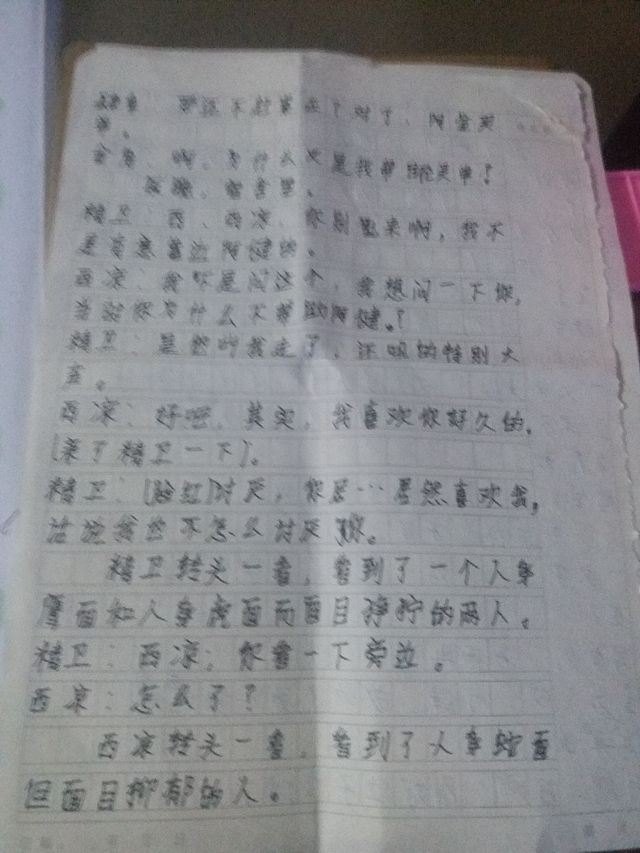 不打算
啊,为什么又是我帮绑架单?
夜晚,宿舍里。
精卫:西、西凉,你别乱来啊,我不
是有意靠近阿健的。
西凉:我不是问这个,我想问一下你,
当时你为什么不帮助阿健。?
精卫:是他叫我走了,还吼的特别大
声。
西凉:好吧,其实,我喜欢你好久的,
(亲了精卫一下)。
精卫:(脸红)讨厌,你居…居然喜欢我,
话说我也不怎么讨厌你。
精卫转头一看,看到了一个人身
鹰面和人身虎面而面目狰狞的两人。
精卫:西凉,你看一下旁边。
西凉:怎么了?
西凉转头一看,看到了人身蛇面
但面目抑郁的人。